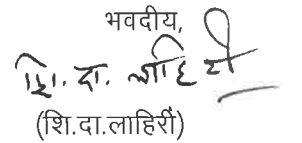 भवदीय,
शि. दा. लाहिरी
(शि.दा.लाहिरी)